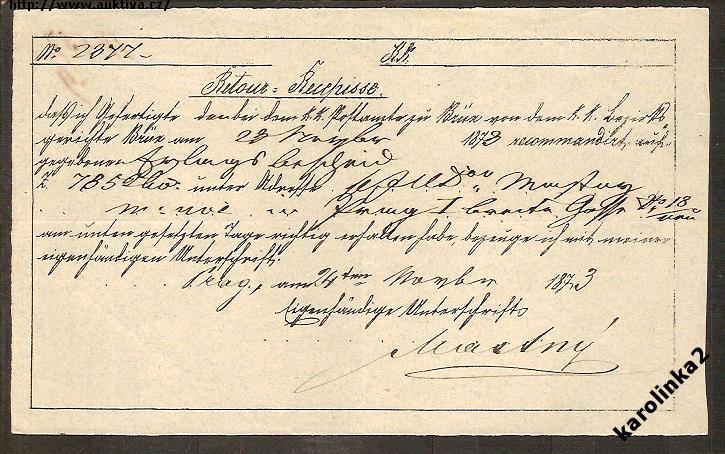 http://www.auktiva.cz/
No 2377
Retour-Recepisse.
daß ich Gefertigte den bei dem k.k. Postamte zu Brüx von dem k.k. Bezirks-
gerichte Brüx am 23 Novbr 1873 recommandirt, auf-
gegebenen Bescheid
Z. unter Adresse Mastny
Prag I breite Gasse No 18
neu
am unten gesetzten Tage richtig erhalten habe, bezeuge ich mit meiner
eigenhändigen Unterschrift.
Prag, am 24ten Novbr 1873
Eigenhändige Unterschrift
Mastný
karolinka2